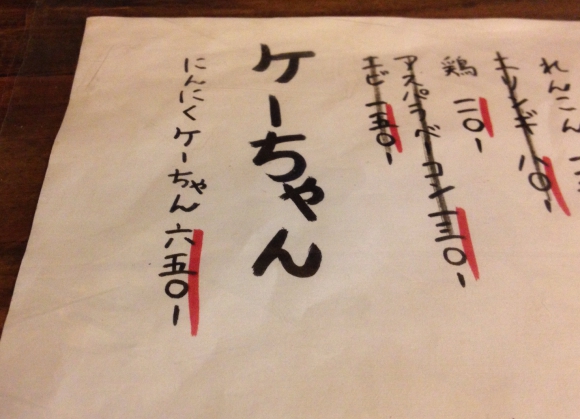 れんこん
エリンギ 一八〇-
鶏 二二〇-
アスパラベーコン 二三〇-
エビ 一五〇-
ケーちゃん
にんにくケーちゃん 六五〇-